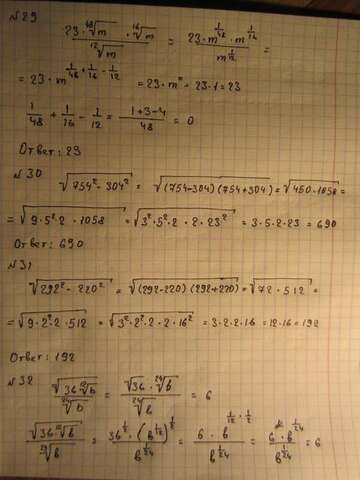 №29
(23 · ⁴⁸√m · ¹⁶√m) / ¹²√m = (23 · m^(1/48) · m^(1/16)) / m^(1/12) =
= 23 · m^(1/48 + 1/16 - 1/12) = 23 · m⁰ = 23 · 1 = 23
1/48 + 1/16 - 1/12 = (1+3-4)/48 = 0
Ответ: 23
№30 √(754² - 304²) = √((754-304)(754+304)) = √(450 · 1058) =
= √(9 · 5² · 2 · 1058) = √(3² · 5² · 2 · 2 · 23²) = 3 · 5 · 2 · 23 = 690
Ответ: 690
№31
√(292² - 220²) = √((292-220)(292+220)) = √(72 · 512) =
= √(9 · 2² · 2 · 512) = √(3² · 2² · 2 · 2 · 16²) = 3 · 2 · 2 · 16 = 12 · 16 = 192
Ответ: 192
№32 √(36 ¹²√b) / ²⁴√b = (√36 · ²⁴√b) / ²⁴√b = 6
√(36 ¹²√b) / ²⁴√b = (36^(1/2) · (b^(1/12))^(1/2)) / b^(1/24) = (6 · b^(1/12 · 1/2)) / b^(1/24) = (6 · b^(1/24)) / b^(1/24) = 6